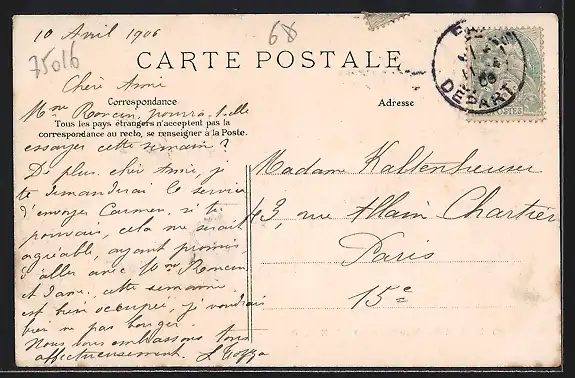 10 Avril 1906
68
75016
CARTE POSTALE
Chère Amie
Correspondance
Adresse
Mme Roncin, pourra-t-elle
Tous les pays étrangers n'acceptent pas la
correspondance au recto, se renseigner à la Poste.
essayer cette semaine ?
De plus, chère Amie, je
te demanderai le service
d'envoyer Carmen, si tu
pouvais, cela me serait
agréable, ayant promis
d'aller avec Mme Roncin
et Jane, cette semaine
est bien occupée, je voudrais
bien ne pas bouger.
Nous vous embrassons tous
affectueusement.
Madame Kaltenheuser
43, rue Alain Chartier
Paris
15e
DÉPART
POSTES